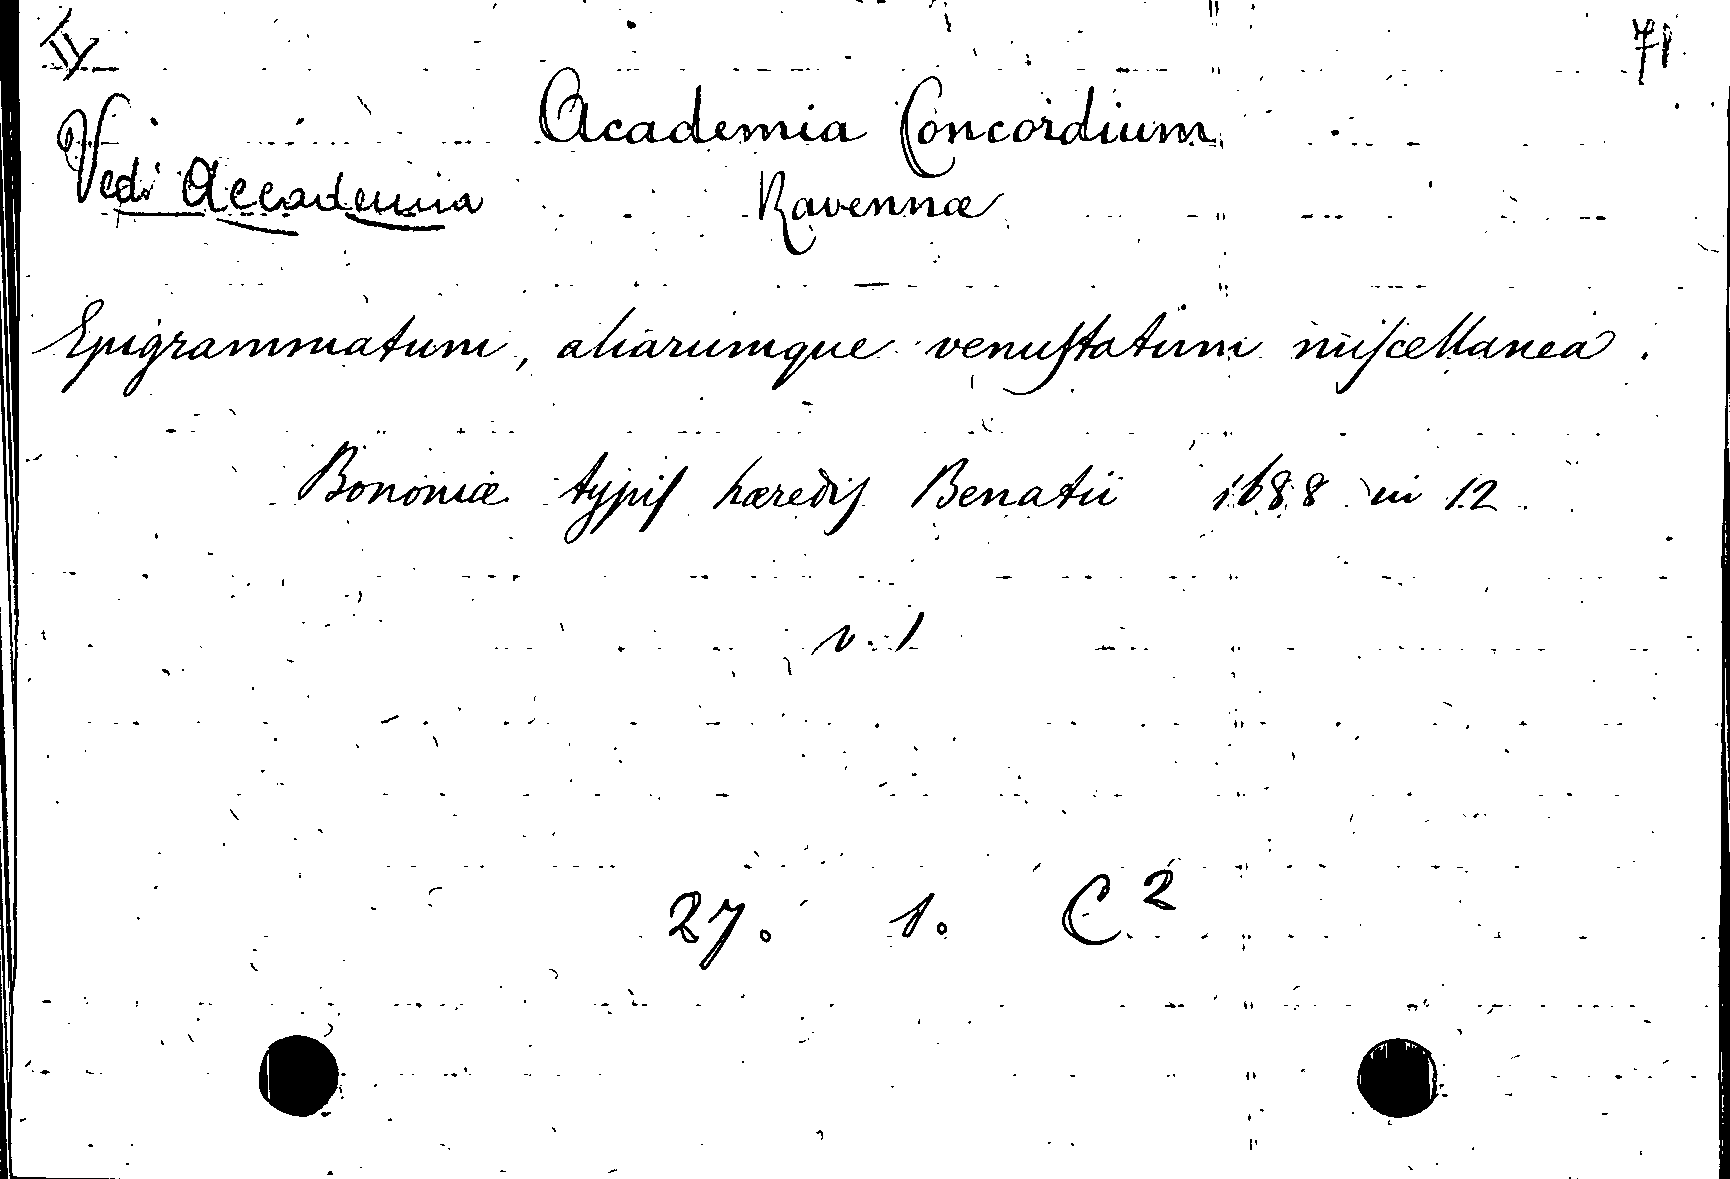 II 71
Academia Concordium
Vedi Accademia
Ravennæ
Epigrammatum, aliarumque venuſtatum miſcellanea.
Bononiæ typiſ hærediſ Benatii 1688 in 12
v. 1
27. 1. C²